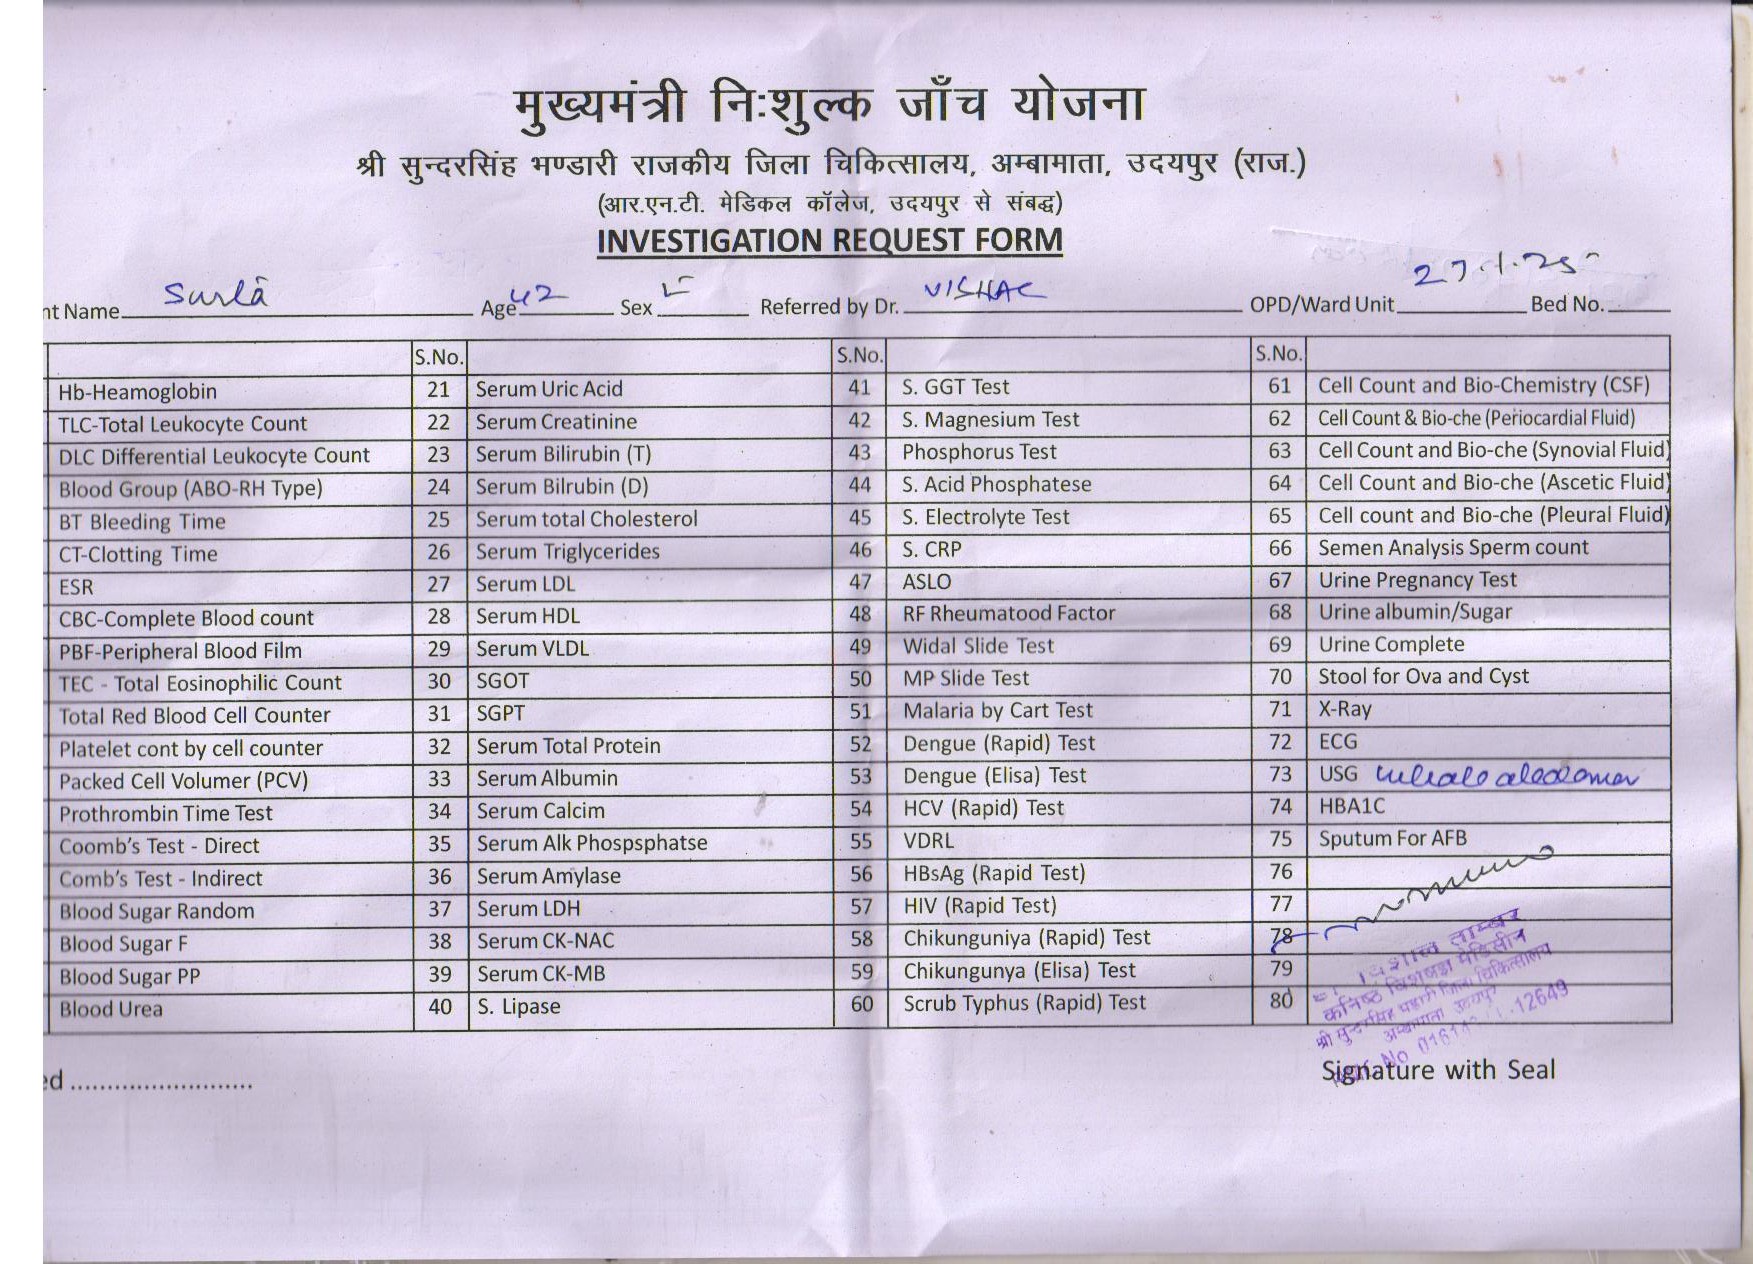 मुख्यमंत्री निःशुल्क जाँच योजना
श्री सुन्दरसिंह भण्डारी राजकीय जिला चिकित्सालय, अम्बामाता, उदयपुर (राज.)
(आर.एन.टी. मेडिकल कॉलेज, उदयपुर से संबद्ध)
INVESTIGATION REQUEST FORM
27.1.25
nt Name Surla Age 42 Sex F Referred by Dr. VISHAL OPD/Ward Unit Bed No.
S.No. S.No. S.No.
Hb-Heamoglobin 21 Serum Uric Acid 41 S. GGT Test 61 Cell Count and Bio-Chemistry (CSF)
TLC-Total Leukocyte Count 22 Serum Creatinine 42 S. Magnesium Test 62 Cell Count & Bio-che (Periocardial Fluid)
DLC Differential Leukocyte Count 23 Serum Bilirubin (T) 43 Phosphorus Test 63 Cell Count and Bio-che (Synovial Fluid)
Blood Group (ABO-RH Type) 24 Serum Bilrubin (D) 44 S. Acid Phosphatese 64 Cell Count and Bio-che (Ascetic Fluid)
BT Bleeding Time 25 Serum total Cholesterol 45 S. Electrolyte Test 65 Cell count and Bio-che (Pleural Fluid)
CT-Clotting Time 26 Serum Triglycerides 46 S. CRP 66 Semen Analysis Sperm count
ESR 27 Serum LDL 47 ASLO 67 Urine Pregnancy Test
CBC-Complete Blood count 28 Serum HDL 48 RF Rheumatood Factor 68 Urine albumin/Sugar
PBF-Peripheral Blood Film 29 Serum VLDL 49 Widal Slide Test 69 Urine Complete
TEC - Total Eosinophilic Count 30 SGOT 50 MP Slide Test 70 Stool for Ova and Cyst
Total Red Blood Cell Counter 31 SGPT 51 Malaria by Cart Test 71 X-Ray
Platelet cont by cell counter 32 Serum Total Protein 52 Dengue (Rapid) Test 72 ECG
Packed Cell Volumer (PCV) 33 Serum Albumin 53 Dengue (Elisa) Test 73 USG
Prothrombin Time Test 34 Serum Calcim 54 HCV (Rapid) Test 74 HBA1C
Coomb's Test - Direct 35 Serum Alk Phospsphatse 55 VDRL 75 Sputum For AFB
Comb's Test - Indirect 36 Serum Amylase 56 HBsAg (Rapid Test) 76
Blood Sugar Random 37 Serum LDH 57 HIV (Rapid Test) 77
Blood Sugar F 38 Serum CK-NAC 58 Chikunguniya (Rapid) Test 78
Blood Sugar PP 39 Serum CK-MB 59 Chikungunya (Elisa) Test 79
Blood Urea 40 S. Lipase 60 Scrub Typhus (Rapid) Test 80
विशाल ताम्बर
कनिष्ठ विशेषज्ञ मेडिसीन
चिकित्सालय
अम्बामाता उदयपुर
12649
ed ........................
Signature with Seal